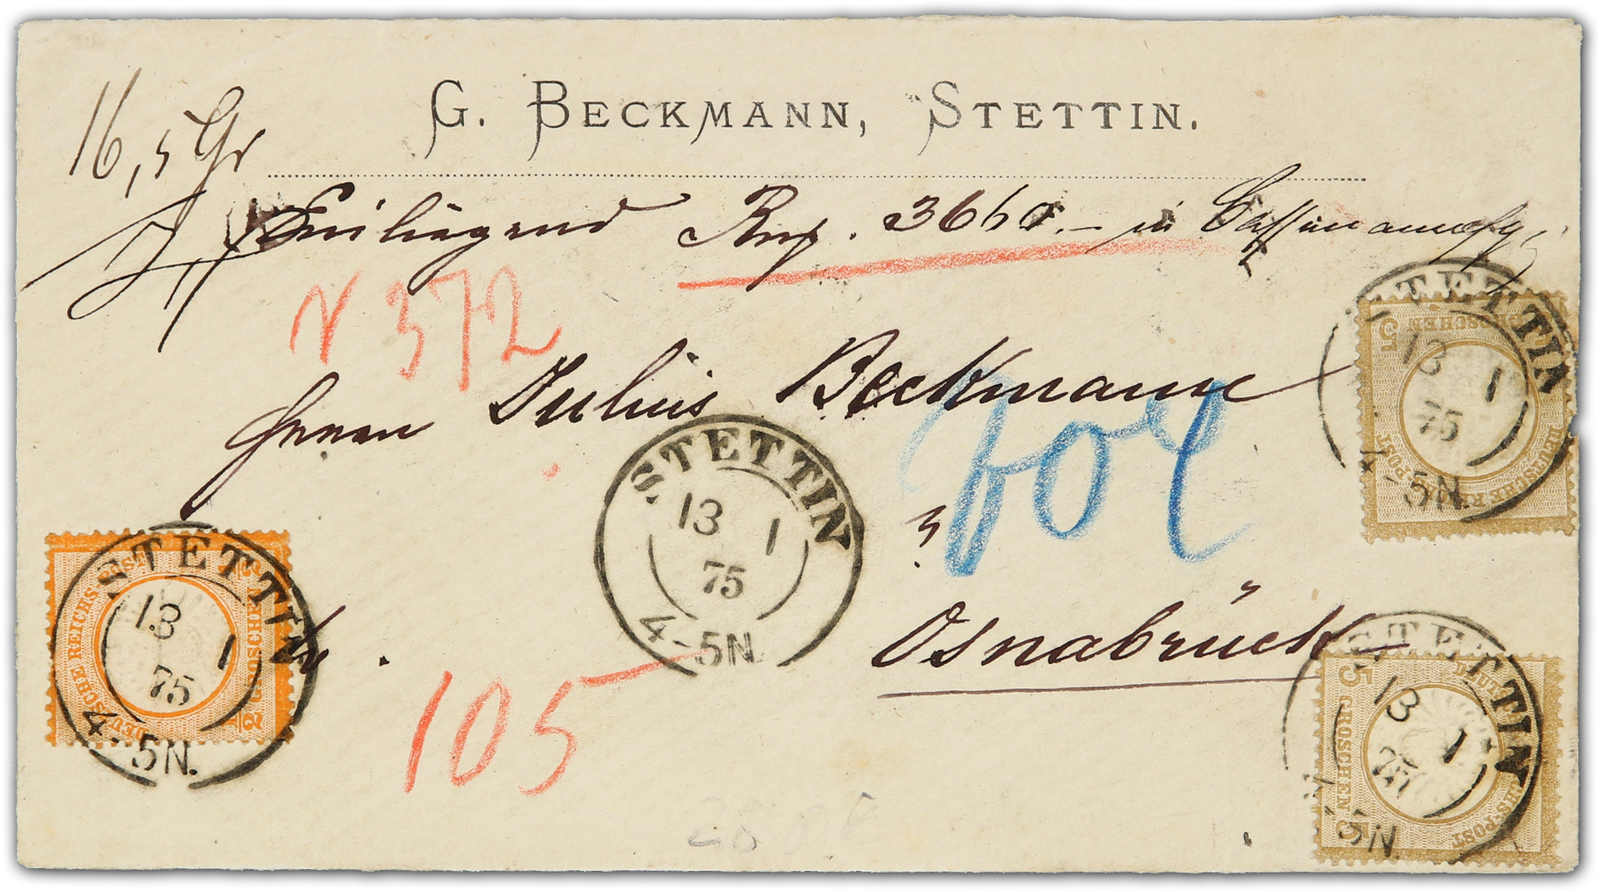 G. BECKMANN, STETTIN.
16,5 Gr
Einliegend Rmk. 3660.— in Cassenanweisg.
N 372
Herrn Julius Beckmann
STETTIN
13 1
75
4-5N.
GROSCHEN 5
DEUTSCHE REICHS-POST
STETTIN
13 1
75
4-5N.
STETTIN
13 1
75
4-5N.
1/2 GROSCHEN
DEUTSCHE REICHS-POST
Osnabrück
105
STETTIN
13 1
75
4-5N.
5 GROSCHEN 5
REICHS-POST